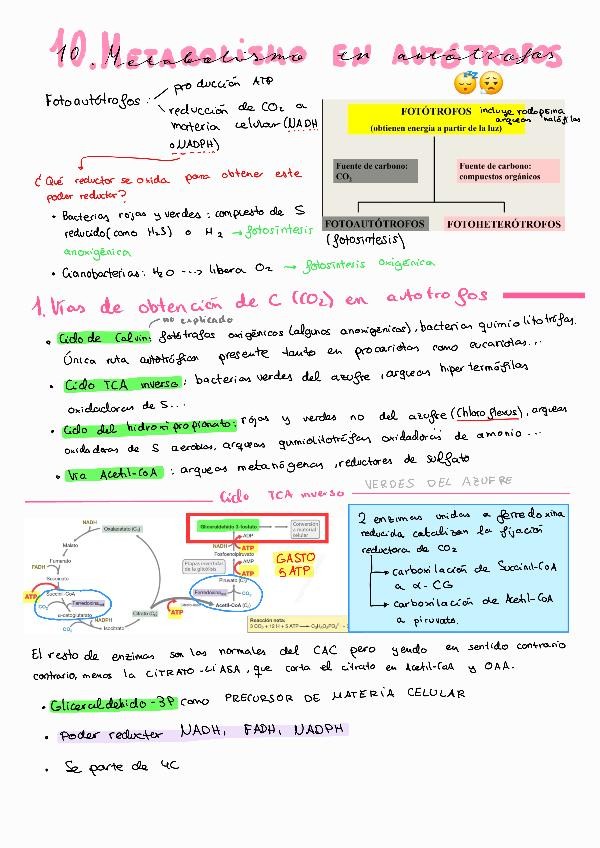 10. METABOLISMO EN AUTÓTROFOS
Fotoautótrofos:
producción ATP
reducción de CO2 a
materia celular (NADH
o NADPH)
¿Qué reductor se oxida para obtener este
poder reductor?
• Bacterias rojas y verdes: compuesto de S
reducido (como H2S) o H2 → fotosíntesis
anoxigénica
• Cianobacterias: H2O ---> libera O2 → fotosíntesis oxigénica
FOTÓTROFOS
incluye rodopsina
arqueas halófilas
(obtienen energía a partir de la luz)
Fuente de carbono:
CO2
Fuente de carbono:
compuestos orgánicos
FOTOAUTÓTROFOS
FOTOHETERÓTROFOS
(fotosíntesis)
1. Vías de obtención de C (CO2) en autótrofos
no explicado
• Ciclo de Calvin: fotótrofos oxigénicos (algunos anoxigénicos), bacterias quimiolitótrofas.
Única ruta autotrófica presente tanto en procariotas como eucariotas...
• Ciclo TCA inverso: bacterias verdes del azufre, arqueas hipertermófilas
oxidadoras de S...
• Ciclo del hidroxipropionato: rojas y verdes no del azufre (Chloroflexus), arqueas
oxidadoras de S aerobias, arqueas quimiolitótrofas oxidadoras de amonio...
• Vía Acetil-CoA: arqueas metanógenas, reductores de sulfato
Ciclo TCA inverso
VERDES DEL AZUFRE
NADH
Oxalacetato (C4)
Malato
Fumarato
FADH
Succinato
ATP
Succinil-CoA
CO2
Ferredoxina
α-cetoglutarato
NADPH
CO2
Isocitrato
Citrato (C6)
ATP
Gliceraldehído 3-fosfato
Conversión
a material
celular
ADP
NADH
ATP
Fosfoenolpiruvato
Etapas invertidas
de la glicólisis
AMP
ATP
Piruvato (C3)
Ferredoxina
CO2
Acetil-CoA (C2)
GASTO
5 ATP
Reacción neta:
3 CO2 + 12 H + 5 ATP → C3H5O3PO3
2 enzimas unidas a ferredoxina
reducida catalizan la fijación
reductora de CO2
carboxilación de Succinil-CoA
a α-CG
carboxilación de Acetil-CoA
a piruvato.
El resto de enzimas son las normales del CAC pero yendo en sentido contrario
contrario, menos la CITRATO-LIASA, que corta el citrato en Acetil-CoA y OAA.
• Gliceraldehído-3P como PRECURSOR DE MATERIA CELULAR
• Poder reductor NADH, FADH, NADPH
• Se parte de 4C